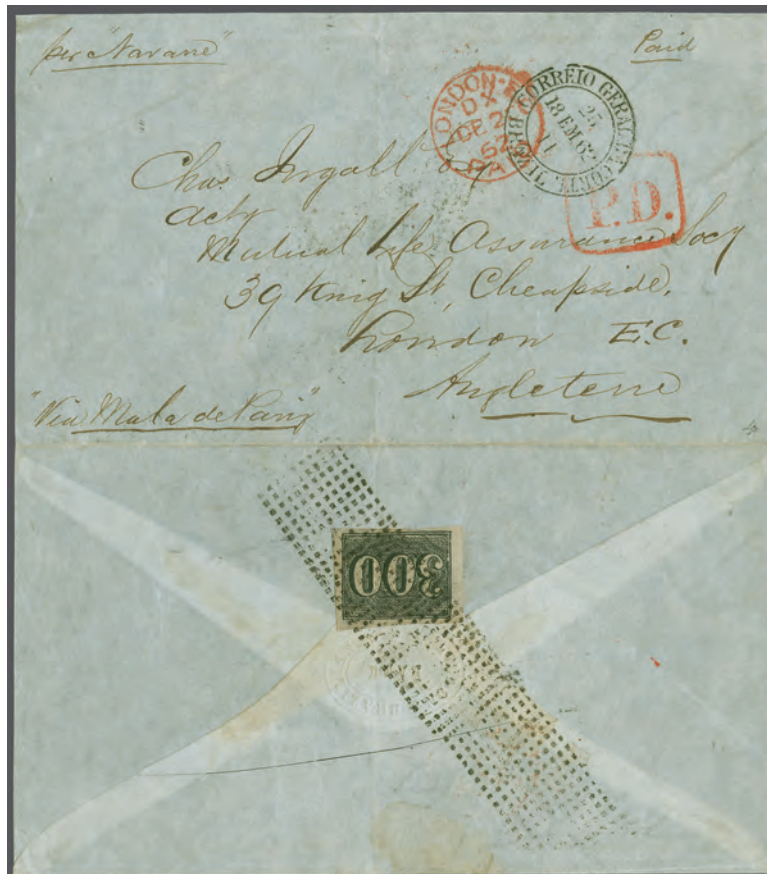 per "Navarre"
Paid
LONDON-E
DX
DE 2
62
PAID
CORREIO GERAL DA CORTE
BRAZIL
25
18 EM 62
11
P.D.
Chas Ingall Esq
Acty
Mutual Life Assurance Socy
39 King St, Cheapside,
London E.C.
Angleterre
"Via Mala de Paris"
300